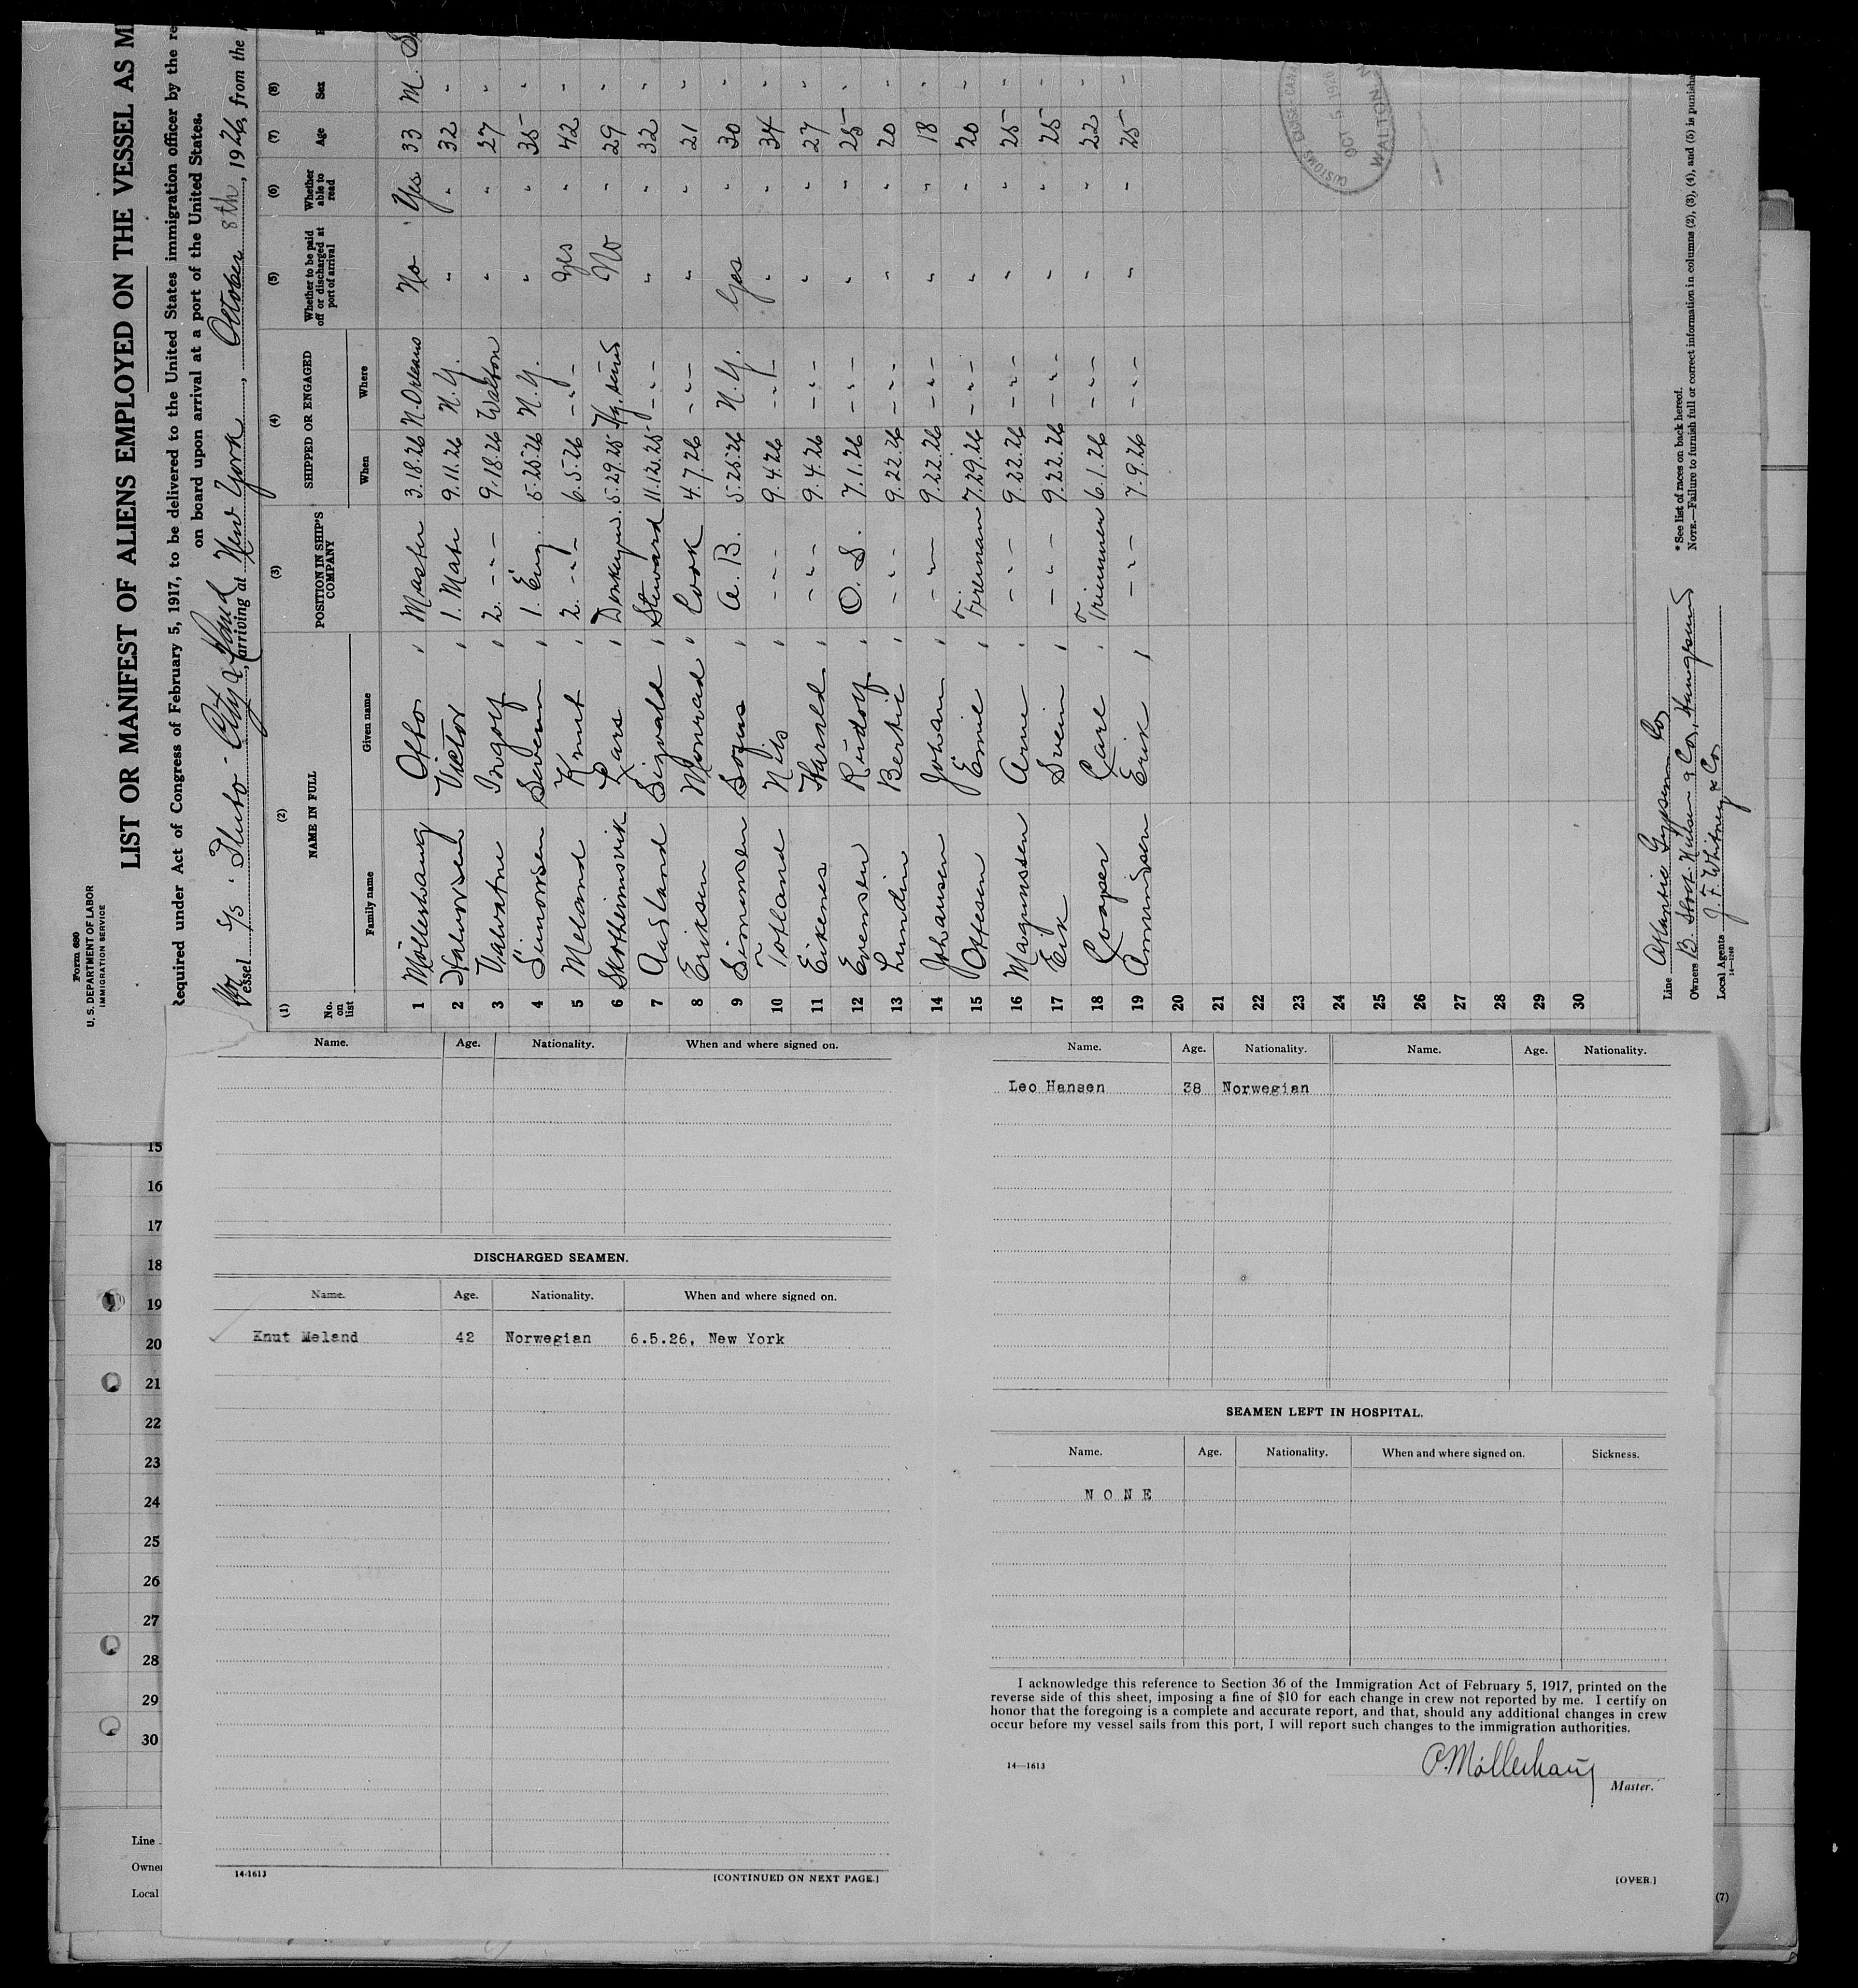 Form 680
U. S. DEPARTMENT OF LABOR
IMMIGRATION SERVICE
LIST OR MANIFEST OF ALIENS EMPLOYED ON THE VESSEL AS M
Required under Act of Congress of February 5, 1917, to be delivered to the United States immigration officer by the re
on board upon arrival at a port of the United States.
Vessel S/S, arriving at New York, October 8th, 1926, from the
(1) (2) (3) (4) (5) (6) (7) (8)
No. on list NAME IN FULL POSITION IN SHIP'S COMPANY SHIPPED OR ENGAGED Whether to be paid off or discharged at port of arrival Whether able to read Age Sex
Family name Given name When Where
1 Möllerhaug Otto Master 3.18.26 N.Orleans No Yes 33 M.
2 Halvorsen Victor 1. Mate 9.11.26 N.Y. " " 32 "
3 Valvatne Ingolf 2. -"- 9.18.26 Walton " " 27 "
4 Simonsen Severin 1. Eng. 5.25.26 N.Y. " " 35 "
5 Meland Knut 2. -"- 6.5.26 -"- Yes " 42 "
6 Skotheimsvik Lars Donkeym. 5.29.25 No " 29 "
7 Aasland Sigvald Steward 11.12.25 -"- " " 32 "
8 Eriksen Monrad Cook 4.7.26 -"- " " 21 "
9 Simonsen Sofus A.B. 5.25.26 N.Y. Yes " 30 "
10 Totland Nils -"- 9.4.26 -"- " " 34 "
11 Eikenes Harald -"- 9.4.26 -"- " " 27 "
12 Evensen Rudolf O.S. 7.1.26 -"- " " 25 "
13 Lundin Bertil -"- 9.22.26 -"- " " 20 "
14 Johansen Johan -"- 9.22.26 -"- " " 18 "
15 Ottesen Emil Fireman 7.29.26 -"- " " 20 "
16 Magnussen Arne -"- 9.22.26 -"- " " 25 "
17 Eik Svein -"- 9.22.26 -"- " " 25 "
18 Cooper Carl Trimmer 6.1.26 -"- " " 22 "
19 Amundsen Erik -"- 7.9.26 -"- " " 25 "
20
21
22
23
24
25
26
27
28
29
30
CUSTOMS
OCT 5 1926
WALTON
Line Atlantic Gypsum Co
Owners B. Stolt-Nielsen & Co, Haugesund
Local Agents J. F. Whitney & Co
14—1240
* See list of races on back hereof.
NOTE.—Failure to furnish full or correct information in columns (2), (3), (4), and (5) is punisha
Name. Age. Nationality. When and where signed on.
DISCHARGED SEAMEN.
Name. Age. Nationality. When and where signed on.
Knut Meland 42 Norwegian 6.5.26, New York
14-1613
[CONTINUED ON NEXT PAGE.]
Name. Age. Nationality. Name. Age. Nationality.
Leo Hansen 38 Norwegian
SEAMEN LEFT IN HOSPITAL.
Name. Age. Nationality. When and where signed on. Sickness.
N O N E
I acknowledge this reference to Section 36 of the Immigration Act of February 5, 1917, printed on the
reverse side of this sheet, imposing a fine of $10 for each change in crew not reported by me. I certify on
honor that the foregoing is a complete and accurate report, and that, should any additional changes in crew
occur before my vessel sails from this port, I will report such changes to the immigration authorities.
O. Möllerhaug
14—1613
Master.
[OVER.]
15
16
17
18
19
20
21
22
23
24
25
26
27
28
29
30
Line
Owne
Local
(7)